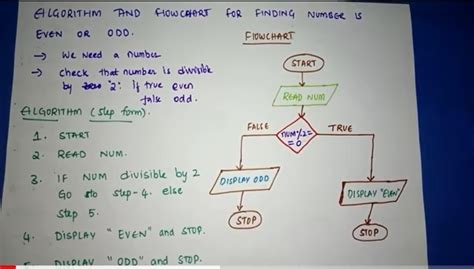 ALGORITHM AND FLOWCHART FOR FINDING NUMBER IS
EVEN OR ODD.
→ We need a number
→ check that number is divisible
by "2". If true even
false odd.
ALGORITHM (step form).
1. START
2. READ NUM.
3. IF NUM divisible by 2
Go to step-4. else
step 5.
4. DISPLAY "EVEN" and STOP.
5. DISPLAY "ODD" and STOP.
FLOWCHART
START
READ NUM
FALSE
TRUE
NUM%2=
=0
DISPLAY ODD
DISPLAY "EVEN"
STOP
STOP